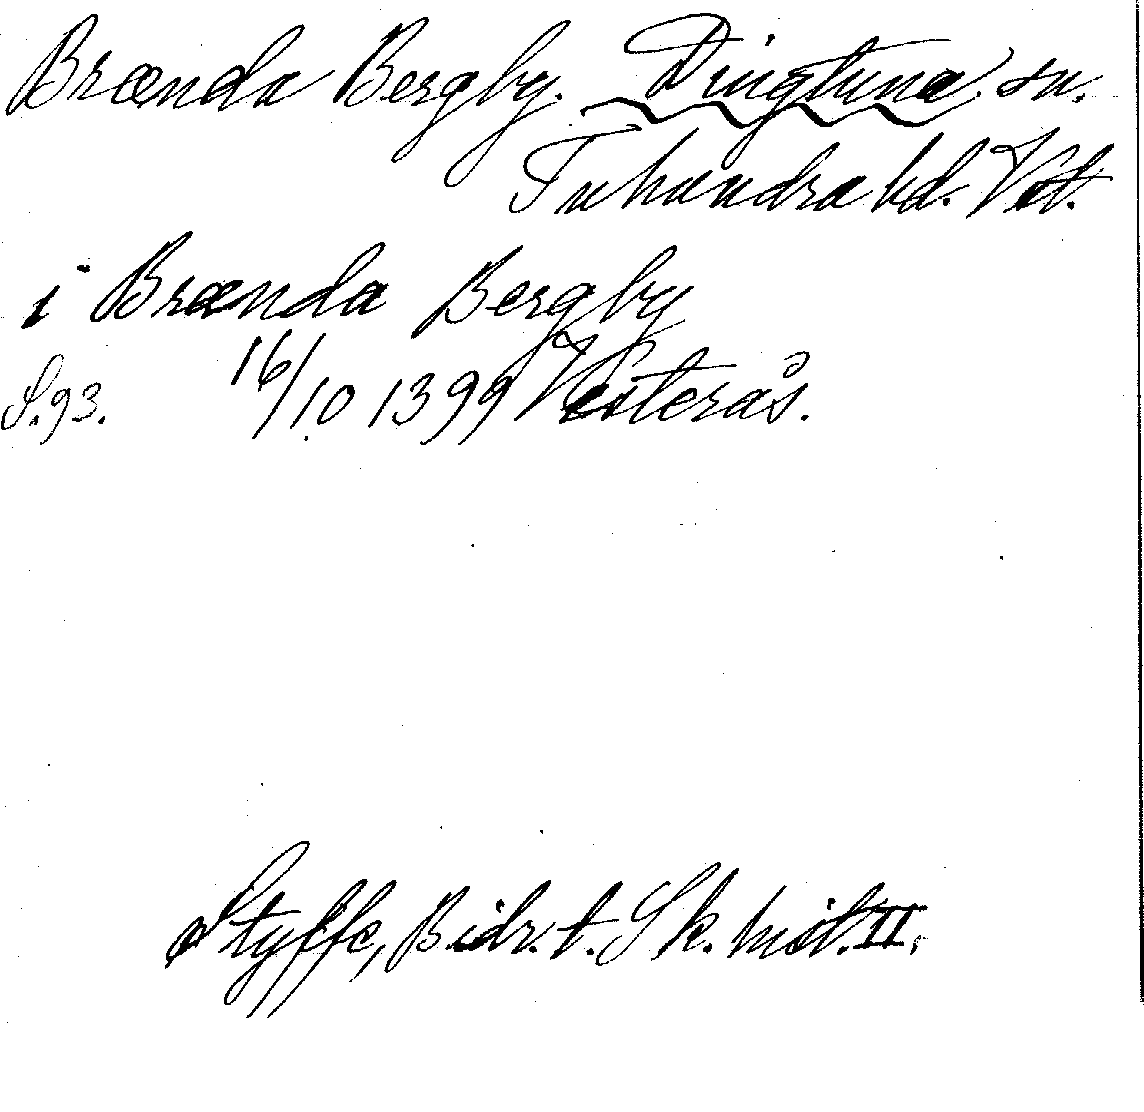 Brænda Bergby. Dingtuna sn.
Tuhundra hd. Vst.
i Brænda Bergby
S. 93. 16/10 1399 Westerås.
Styffe, Bidr. t. Sk. hist. II.